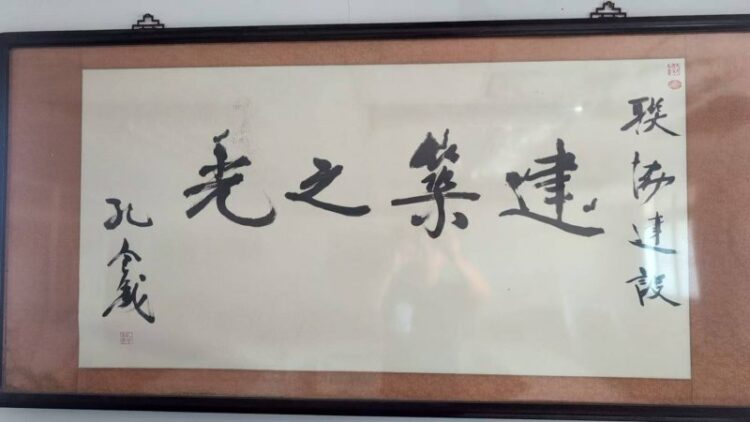 聯協建設
建築之光
孔令